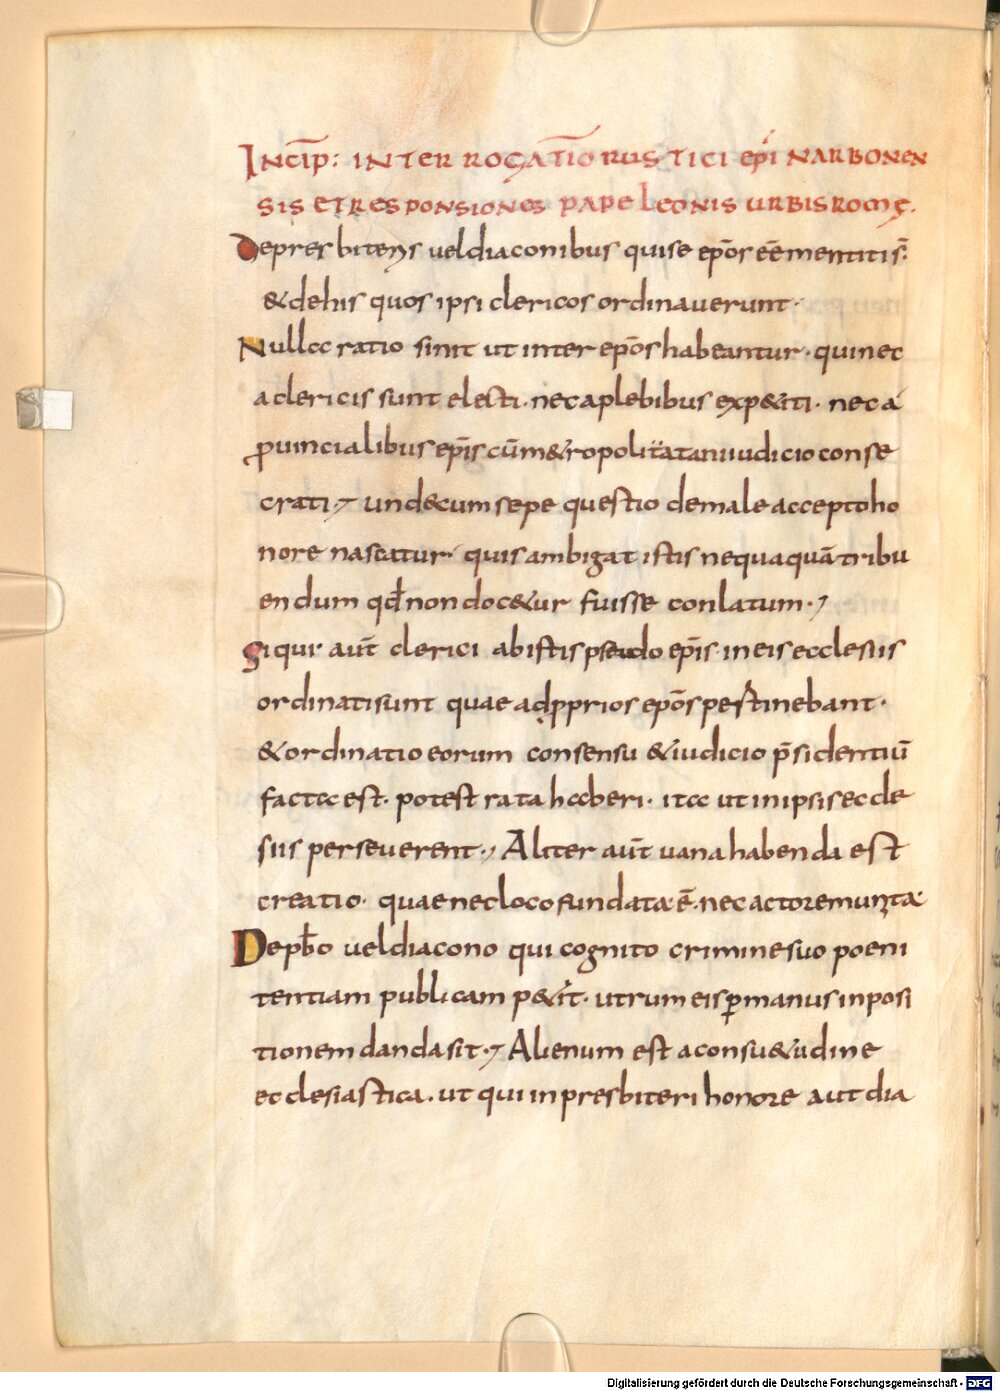 INCIP̄: INTERROGATIO RUSTICI EP̄I NARBONEN
SIS ET RESPONSIONES PAPE LEONIS URBIS ROMĘ.
De presbiteris vel diaconibus qui se ep̄os eē mentiti s̄:
& de his quos ipsi clericos ordinaverunt·
Nulla ratio sinit ut inter ep̄os habeantur· qui nec
a clericis sunt electi· nec a plebibus exp&iti· nec a
ꝓuincialibus ep̄is cū m&ropolitani iudicio conse
crati·⁊ und& cum sepe questio de male accepto ho
nore nascatur quis ambigat istis nequaquā tribu
endum qđ non doc&ur fuisse conlatum·,
Siqui aut̄ clerici ab istis pseudo ep̄is in eis ecclesiis
ordinati sunt quae ad ꝓprios ep̄os pertinebant·
& ordinatio eorum consensu & iudicio p̄sidentiū
facta est· potest rata haberi· ita ut in ipsis eccle
siis perseverent·, Aliter aut̄ vana habenda est
creatio· quae nec loco fundata ē· nec actore munita·
De pb̄o vel diacono qui cognito crimine suo poeni
tentiam publicam p&it· utrum eis ꝑ manus inposi
tionem danda sit·⁊ Alienum est a consu&udine
ecclesiastica· ut qui in presbiteri honore aut dia
Digitalisierung gefördert durch die Deutsche Forschungsgemeinschaft - DFG